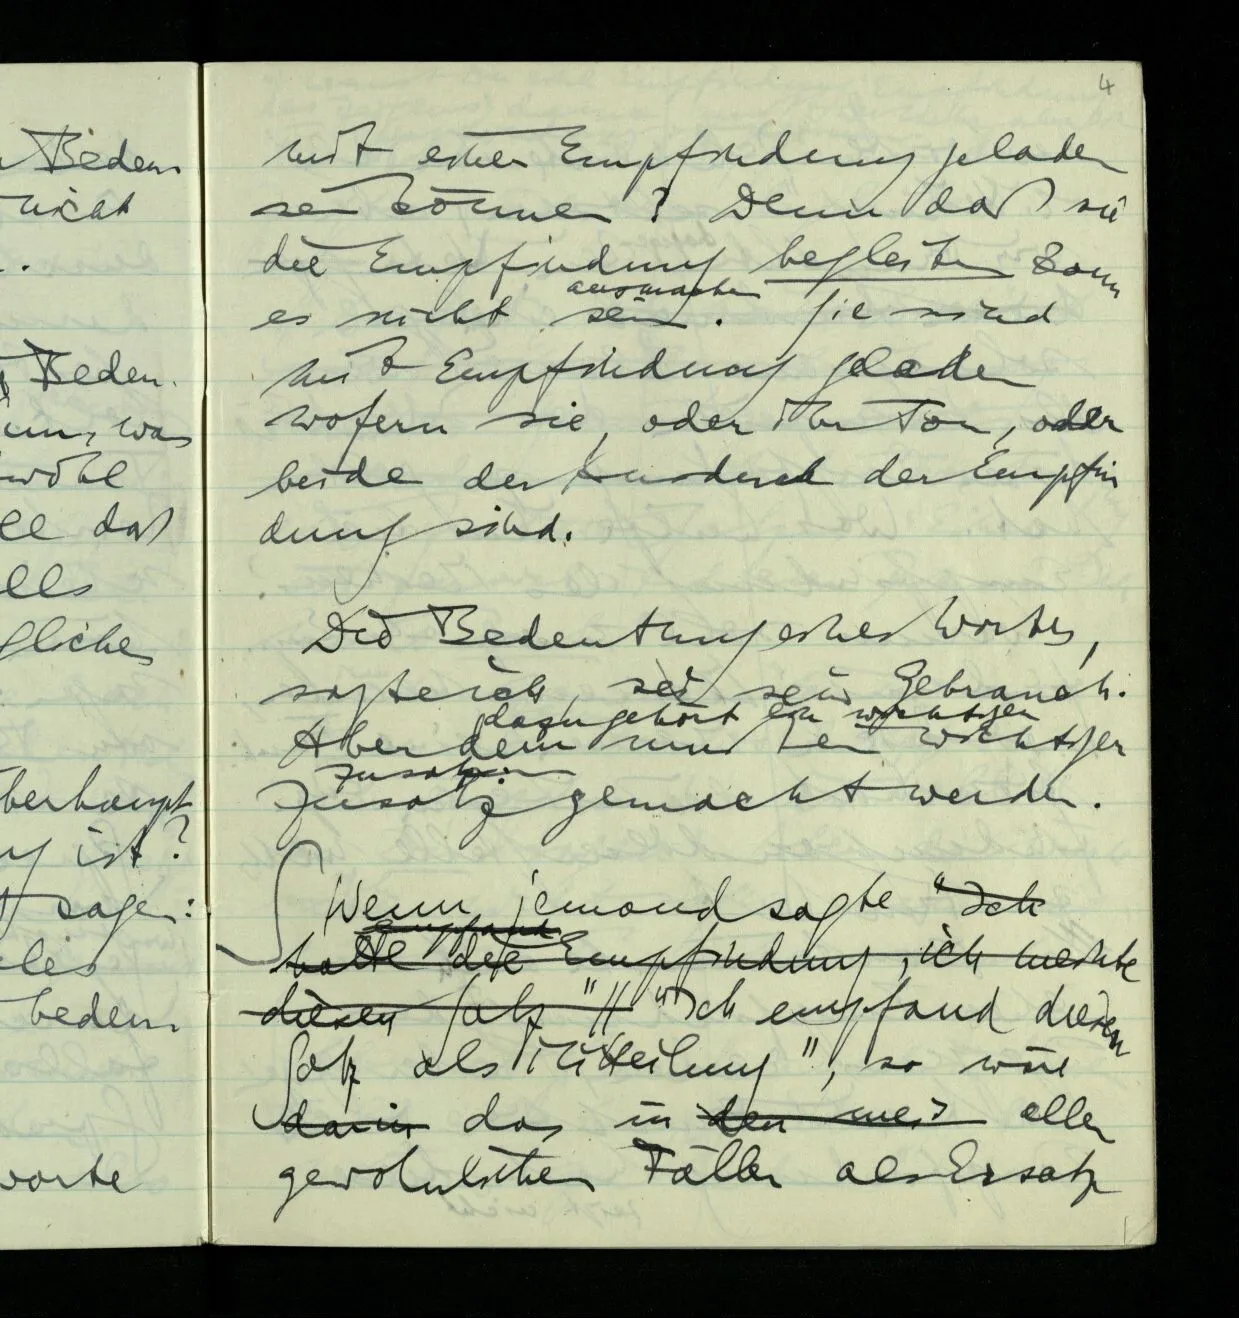 Bedeu-
nicht
.
Bedeu-
was
wohl
daß
gliches
berhaupt
ist?
sagen:
bedeu-
worte
4
mit einer Empfindung geladen
sein können? Denn daß sie
die Empfindung begleiten kann
ausmachen
es nicht sein. Sie sind
mit Empfindung geladen
wofern sie, oder ihr Ton, oder
beide der Ausdruck der Empfin
dung sind.
Die Bedeutung eines Wortes,
sagte ich, sei sein Gebrauch.
dazu gehört ein wichtiger
Aber dem muß ein wichtiger
Zusatz
Zusatz gemacht werden.
Wenn jemand sagte "Ich
empfand
hatte die Empfindung, ich meinte
diesen Satz" // "Ich empfand diesen
Satz als Mitteilung", so wäre
darin das in den mei allen
gewöhnlichen Fällen als Ersatz